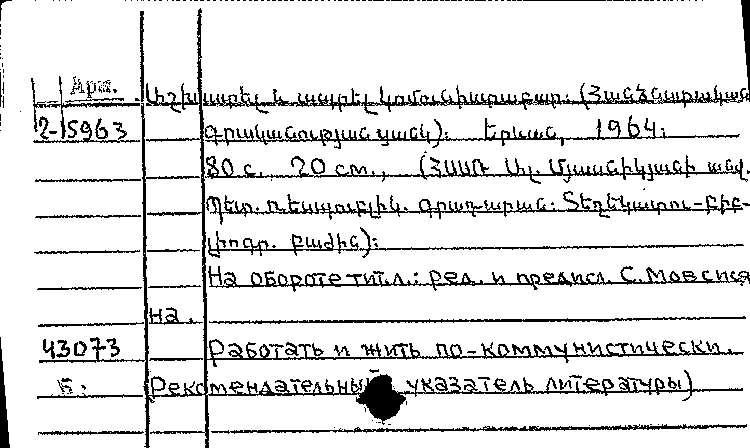 Арм.
Աշխատել և ապրել կոմունիստաբար։ (Հանձնարարական
2-15963 գրականության ցանկ)։ Երևան, 1964։
80 с. 20 см., (ՀՍՍՌ Ալ. Մյասնիկյանի անվ.
Պետ. ռեսպուբլիկ. գրադարան։ Տեղեկատու-բիբ-
լիոգր. բաժին)։
На обороте тит.л.: ред. и предисл. С. Мовсися
на.
43073 Работать и жить по-коммунистически.
(Рекомендательный указатель литературы)